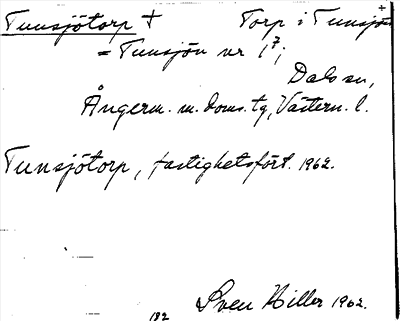 Tunsjötorp + Torp i Tunsjön
= Tunsjön nr 1⁷;
Dals sn,
Ångerm. m. doms. tg, Västern. l.
Tunsjötorp, fastighetsfört. 1962.
Sven Hiller 1962.
182